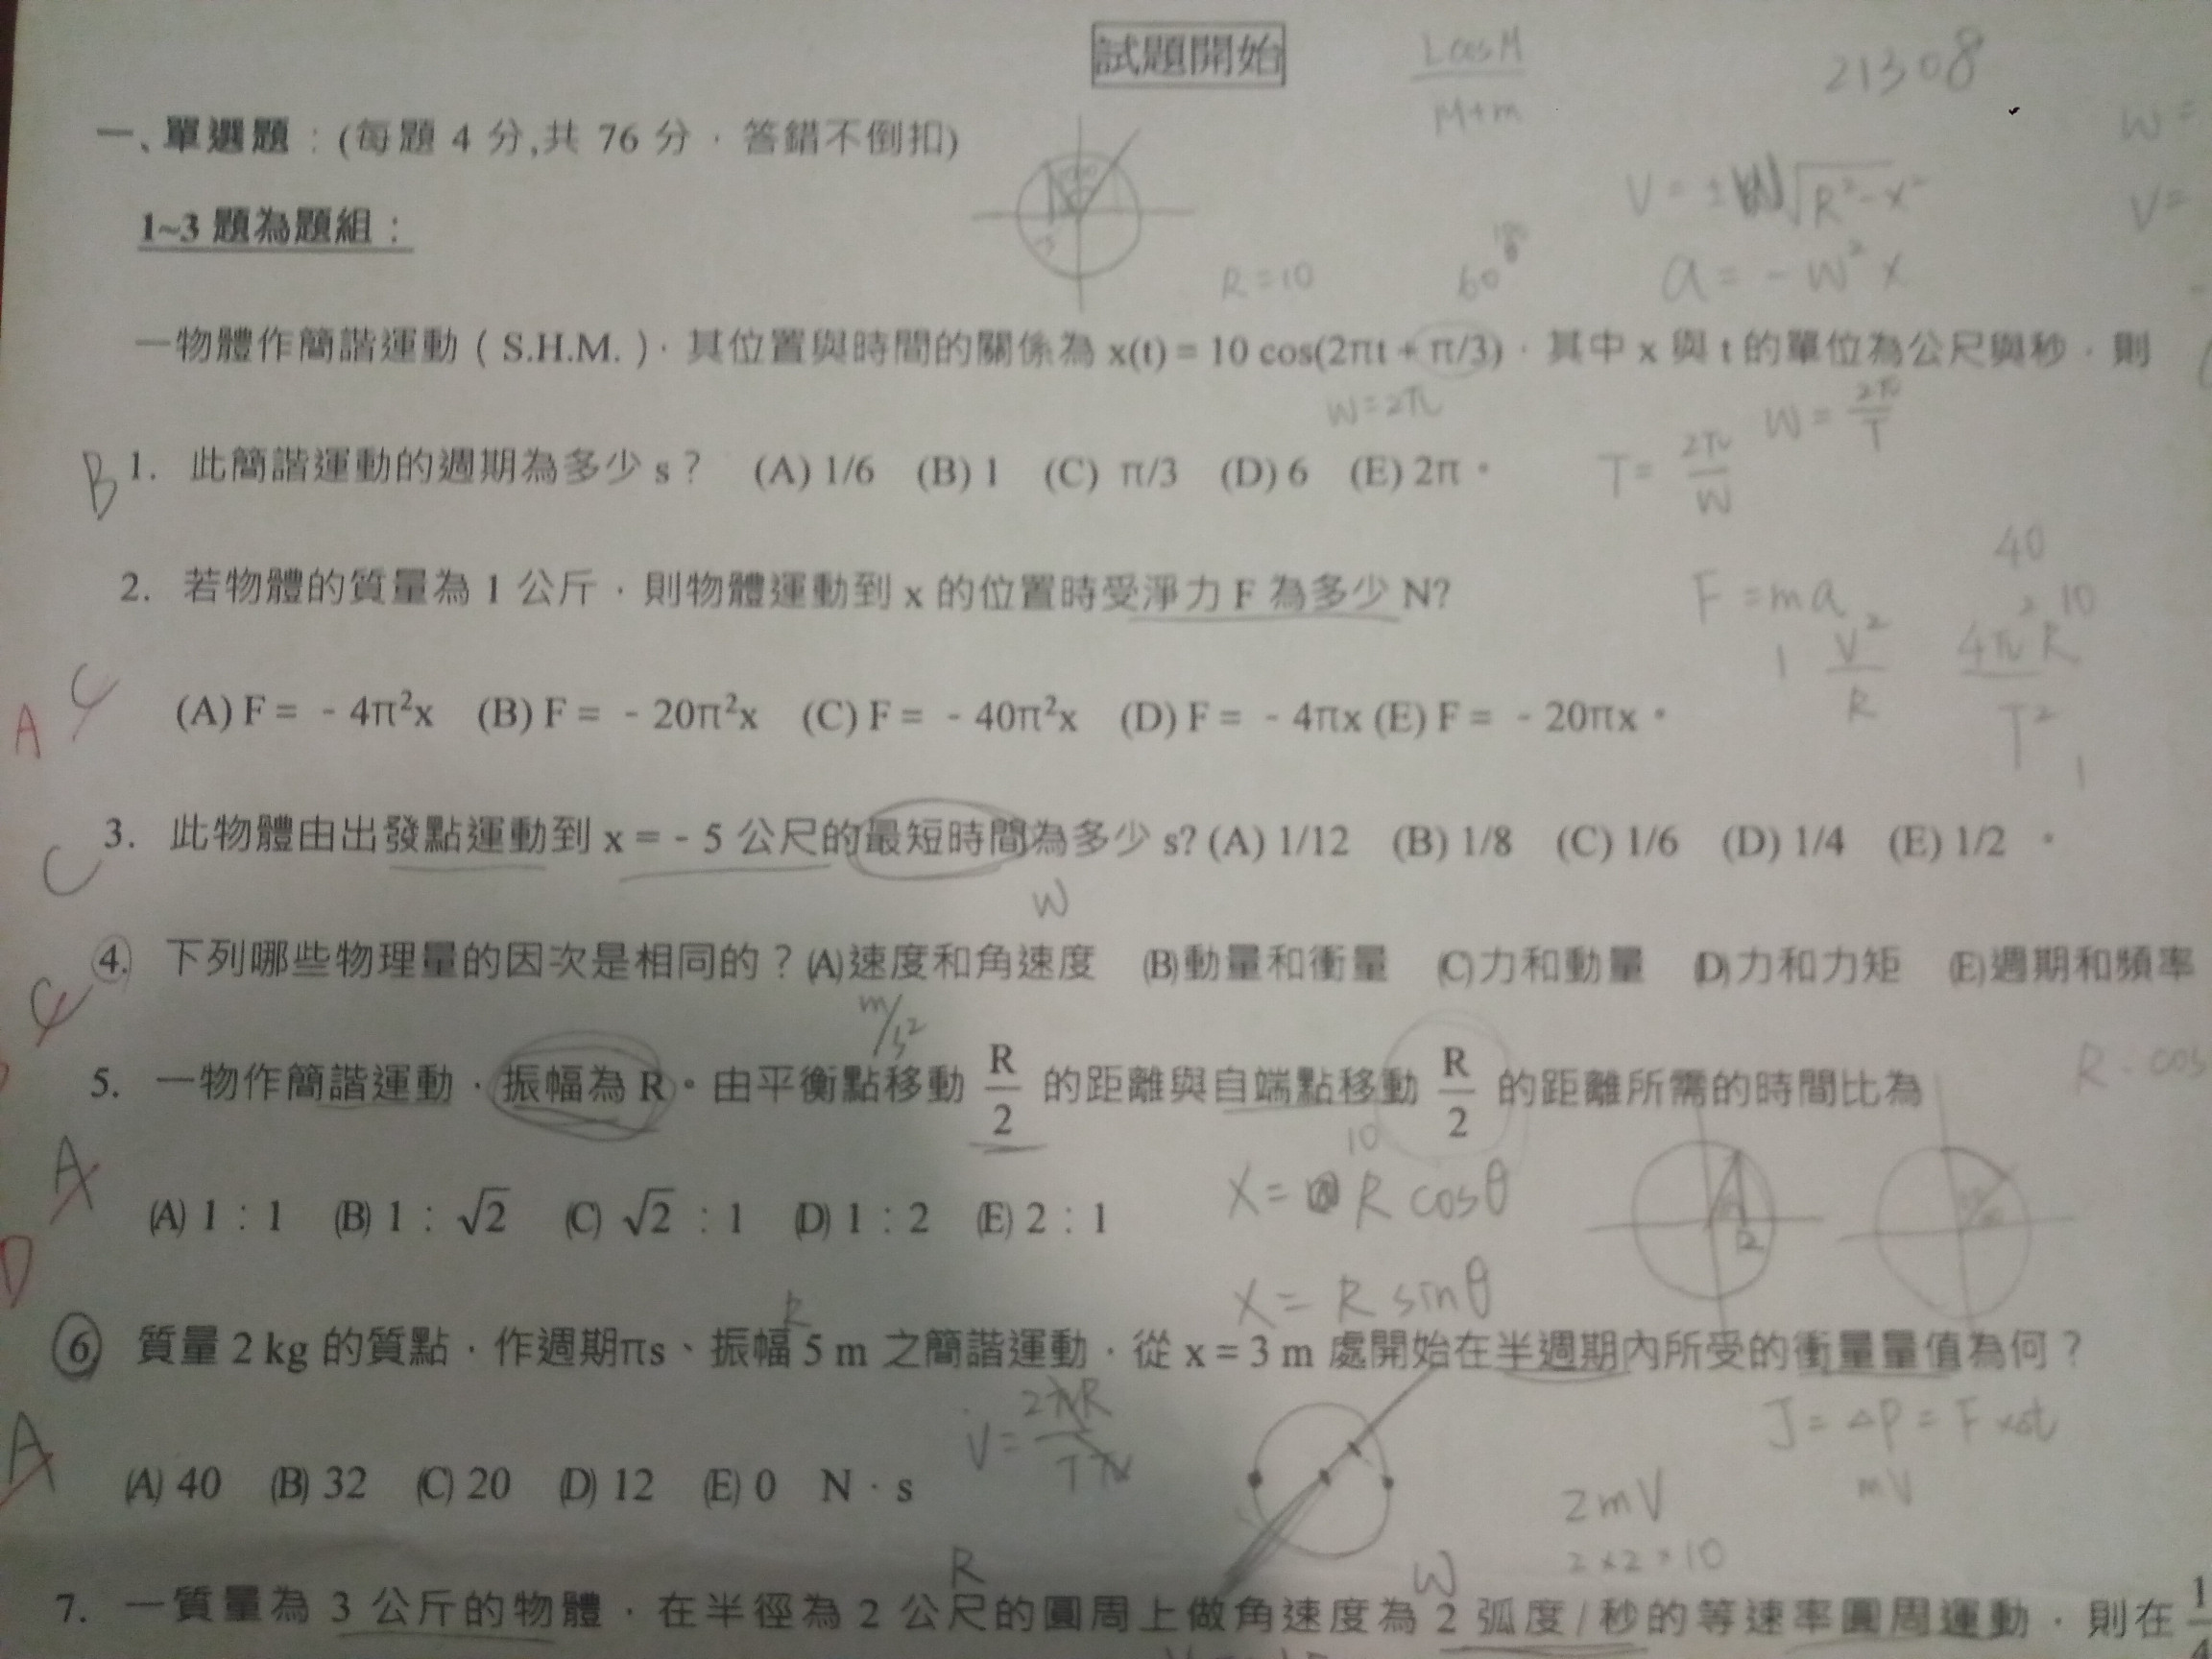 試題開始
LcosM
M+m
21308
一、單選題：(每題 4 分,共 76 分，答錯不倒扣)
W=
V=±W√R²-x²
V=
1~3 題為題組：
R=10
60°
a=-w²x
一物體作簡諧運動（S.H.M.），其位置與時間的關係為 x(t) = 10 cos(2πt + π/3)，其中 x 與 t 的單位為公尺與秒，則
W=2π
W=2π/T
B 1. 此簡諧運動的週期為多少 s？ (A) 1/6 (B) 1 (C) π/3 (D) 6 (E) 2π。
T=2π/W
40
2. 若物體的質量為 1 公斤，則物體運動到 x 的位置時受淨力 F 為多少 N?
F=ma
10
1 V²/R
4π²R/T²
1
A C
(A) F = - 4π²x (B) F = - 20π²x (C) F = - 40π²x (D) F = - 4πx (E) F = - 20πx。
C 3. 此物體由出發點運動到 x = - 5 公尺的最短時間為多少 s? (A) 1/12 (B) 1/8 (C) 1/6 (D) 1/4 (E) 1/2 。
W
C 4. 下列哪些物理量的因次是相同的？(A)速度和角速度 (B)動量和衝量 (C)力和動量 (D)力和力矩 (E)週期和頻率
m/s²
R·cos
5. 一物作簡諧運動，振幅為 R。由平衡點移動 R/2 的距離與自端點移動 R/2 的距離所需的時間比為
10
A
X= R cosθ
(A) 1：1 (B) 1：√2 (C) √2：1 (D) 1：2 (E) 2：1
D
X= R sinθ
R
6 質量 2 kg 的質點，作週期πs、振幅 5 m 之簡諧運動，從 x = 3 m 處開始在半週期內所受的衝量量值為何？
V=2πR/Tπ
J=ΔP=F×Δt
mV
A
(A) 40 (B) 32 (C) 20 (D) 12 (E) 0 N．s
2mV
2×2×10
R
W
7. 一質量為 3 公斤的物體，在半徑為 2 公尺的圓周上做角速度為 2 弧度/秒的等速率圓周運動，則在 1/4